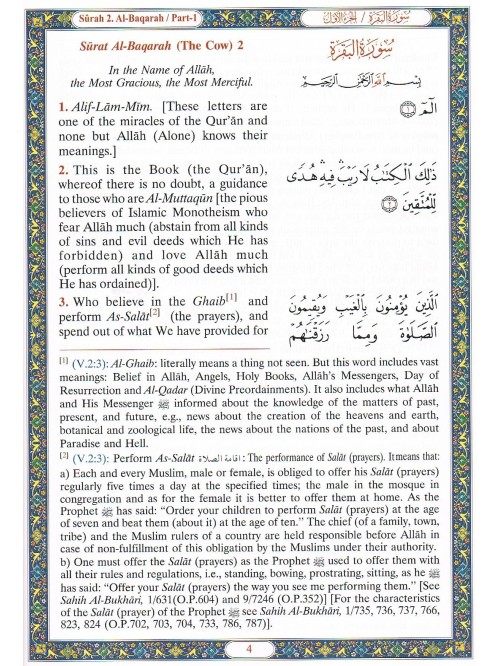 Sûrah 2. Al-Baqarah / Part-1
سورة البقرة ٢ / الجزء الأول ١
Sûrat Al-Baqarah (The Cow) 2
سُورَةُ البَقَرَةِ
In the Name of Allâh,
the Most Gracious, the Most Merciful.
بِسْمِ اللَّهِ الرَّحْمَٰنِ الرَّحِيمِ
1. Alif-Lâm-Mîm. [These letters are
one of the miracles of the Qur’ân and
none but Allâh (Alone) knows their
meanings.]
الٓمٓ ١
2. This is the Book (the Qur’ân),
whereof there is no doubt, a guidance
to those who are Al-Muttaqûn [the pious
believers of Islamic Monotheism who
fear Allâh much (abstain from all kinds
of sins and evil deeds which He has
forbidden) and love Allâh much
(perform all kinds of good deeds which
He has ordained)].
ذَٰلِكَ الْكِتَٰبُ لَا رَيْبَ ۛ فِيهِ ۛ هُدًى
لِّلْمُتَّقِينَ ٢
3. Who believe in the Ghaib[1] and
perform As-Salât[2] (the prayers), and
spend out of what We have provided for
الَّذِينَ يُؤْمِنُونَ بِالْغَيْبِ وَيُقِيمُونَ
الصَّلَوٰةَ وَمِمَّا رَزَقْنَٰهُمْ
[1] (V.2:3): Al-Ghaib: literally means a thing not seen. But this word includes vast
meanings: Belief in Allâh, Angels, Holy Books, Allâh’s Messengers, Day of
Resurrection and Al-Qadar (Divine Preordainments). It also includes what Allâh
and His Messenger ﷺ informed about the knowledge of the matters of past,
present, and future, e.g., news about the creation of the heavens and earth,
botanical and zoological life, the news about the nations of the past, and about
Paradise and Hell.
[2] (V.2:3): Perform As-Salât اقامة الصلاة : The performance of Salât (prayers). It means that:
a) Each and every Muslim, male or female, is obliged to offer his Salât (prayers)
regularly five times a day at the specified times; the male in the mosque in
congregation and as for the female it is better to offer them at home. As the
Prophet ﷺ has said: “Order your children to perform Salât (prayers) at the age
of seven and beat them (about it) at the age of ten.” The chief (of a family, town,
tribe) and the Muslim rulers of a country are held responsible before Allâh in
case of non-fulfillment of this obligation by the Muslims under their authority.
b) One must offer the Salât (prayers) as the Prophet ﷺ used to offer them with
all their rules and regulations, i.e., standing, bowing, prostrating, sitting, as he ﷺ
has said: “Offer your Salât (prayers) the way you see me performing them.” [See
Sahih Al-Bukhâri, 1/631(O.P.604) and 9/7246 (O.P.352)] [For the characteristics
of the Salât (prayer) of the Prophet ﷺ see Sahih Al-Bukhâri, 1/735, 736, 737, 766,
823, 824 (O.P.702, 703, 704, 733, 786, 787)].
4